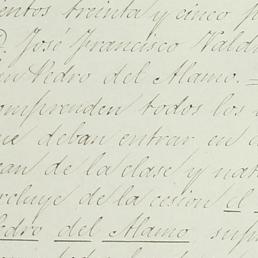 entos treinta y cinco p
D. José Francisco Vald
an Pedro del Alamo. =
omprenden todos los
ue deban entrar en
ean de la clase y nat
cluye de la cesión el
Pedro del Alamo